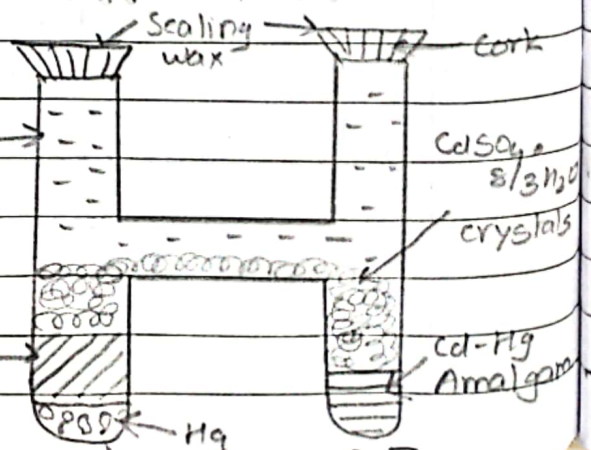 Sealing
wax
Cork
CdSO4.
8/3H2O
crystals
Cd-Hg
Amalgam
Hg